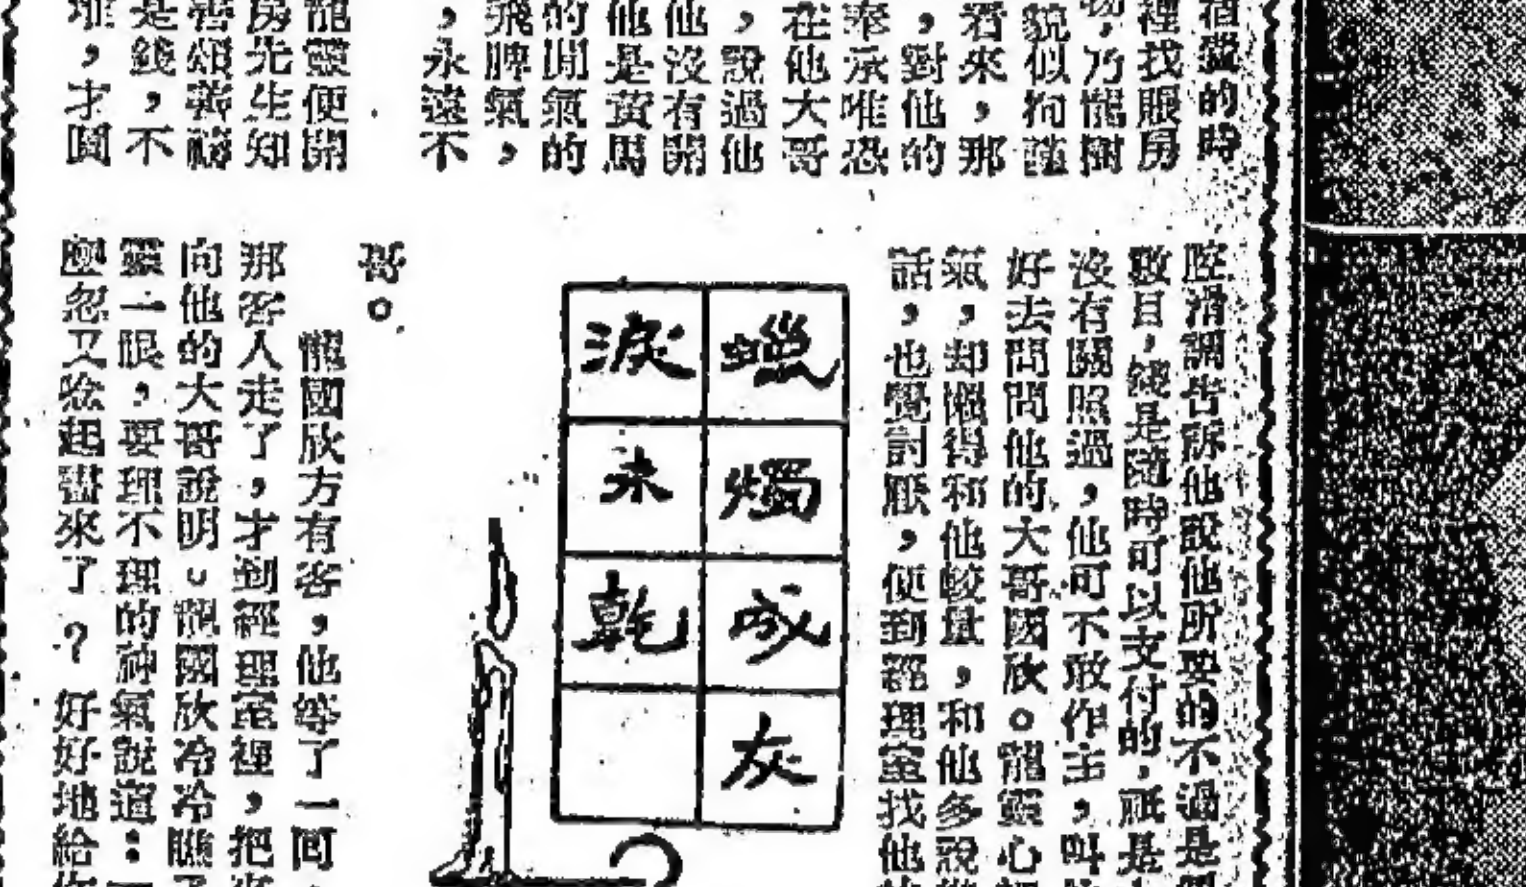 宿費的時
裡找賬房
乃龍樹
貌似拘謹
看來，那
，對他的
奉承唯恐
在他大哥
，說過他
他沒有開
他是黃馬
的閒氣的
飛脾氣，
，永遠不
龍靈便開
房先生知
是錢，不
堆，才圓
腔滑調告訴他說他所要的不過是
數目，錢是隨時可以支付的，祇是
沒有關照過，他可不敢作主，叫
好去問問他的大哥國欣。龍靈心
氣，却懶得和他較量，和他多說
話，也覺討厭，便到經理室找他
蠟燭成灰
淚未乾
哥。
龍國欣方有客，他等了一回，
那客人走了，才到經理室裡，把
向他的大哥說明。龍國欣冷冷瞧了
靈一眼，要理不理的神氣說道：
麼忽又念起書來了？好好地給你